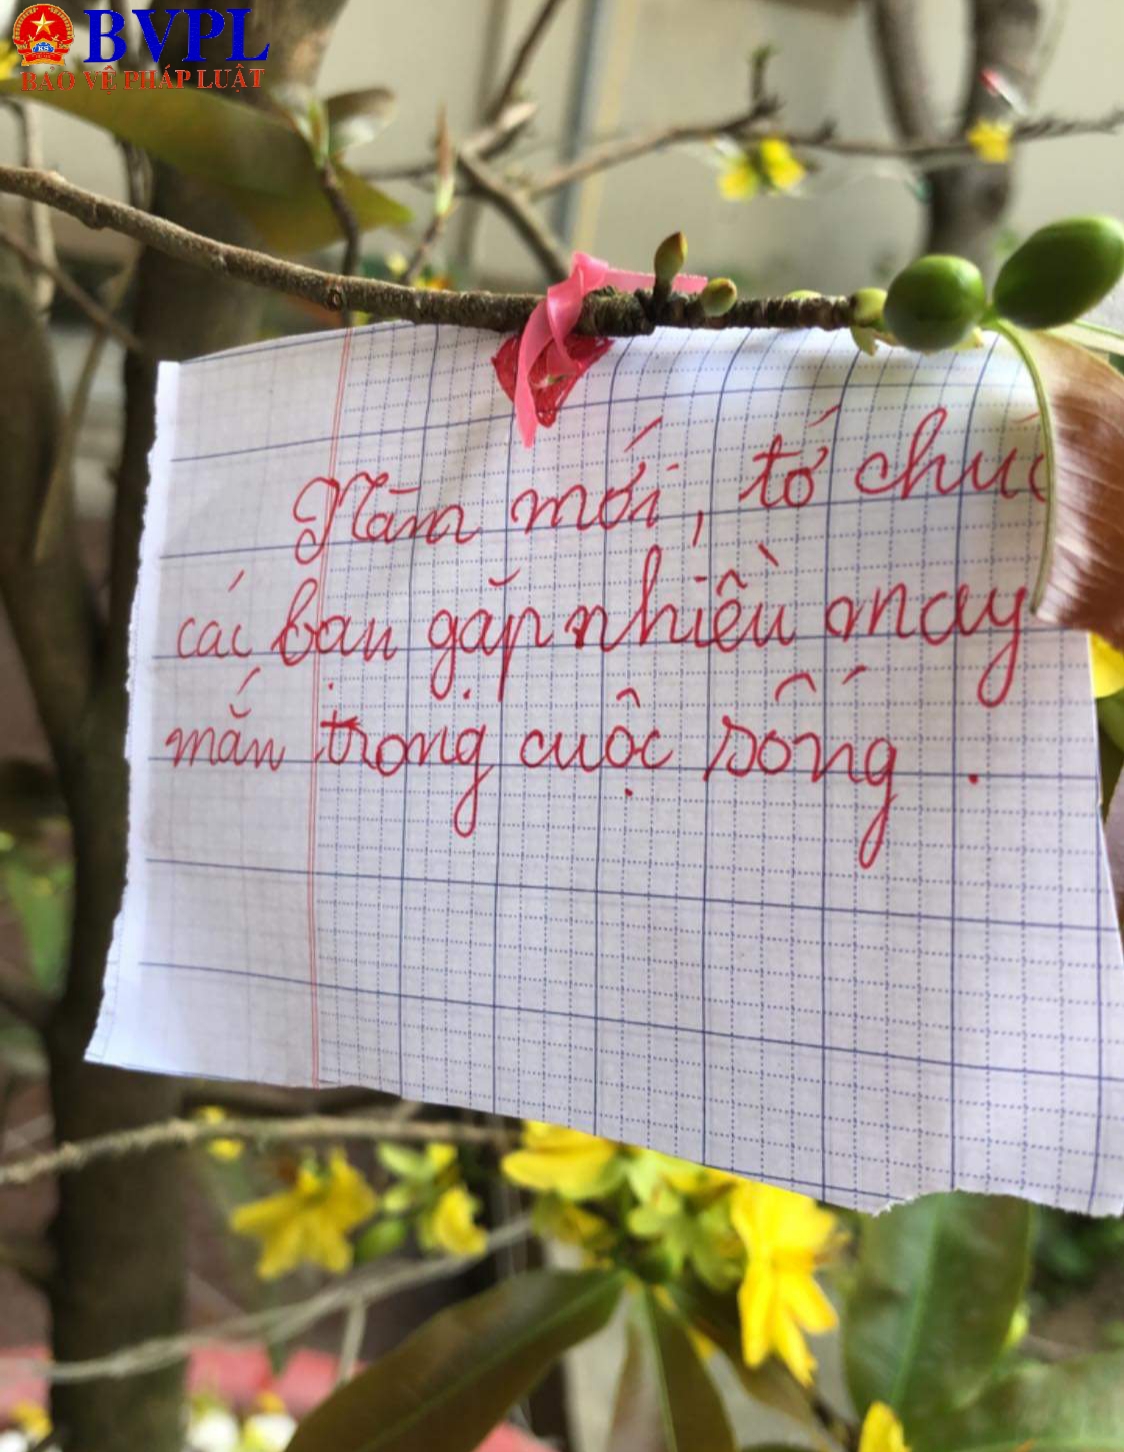 BVPL
BẢO VỆ PHÁP LUẬT
Năm mới, tớ chúc
các bạn gặp nhiều may
mắn trong cuộc sống.